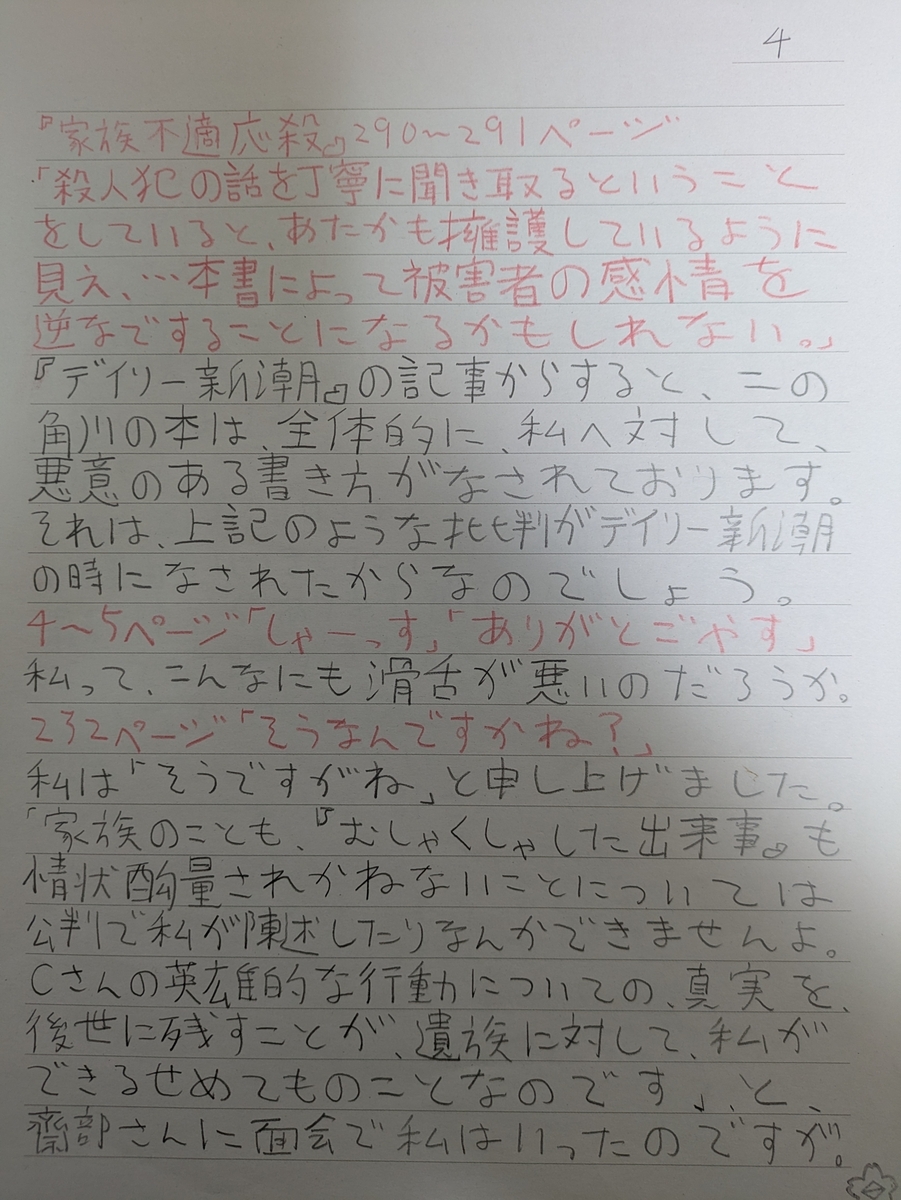 4
『家族不適応殺』290〜291ページ
「殺人犯の話を丁寧に聞き取るということ
をしていると、あたかも擁護しているように
見え、…本書によって被害者の感情を
逆なですることになるかもしれない。」
『デイリー新潮』の記事からすると、この
角川の本は、全体的に、私へ対して、
悪意のある書き方がなされております。
それは、上記のような批判がデイリー新潮
の時になされたからなのでしょう。
4〜5ページ「しゃーっす」「ありがとごやす」
私って、こんなにも滑舌が悪いのだろうか。
232ページ「そうなんですかね?」
私は「そうですがね」と申し上げました。
「家族のことも、『むしゃくしゃした出来事』も
情状酌量されかねないことについては
公判で私が陳述したりなんかできませんよ。
Cさんの英雄的な行動についての、真実を、
後世に残すことが、遺族に対して、私が
できるせめてものことなのです」、と、
齋部さんに面会で私はいったのですが。